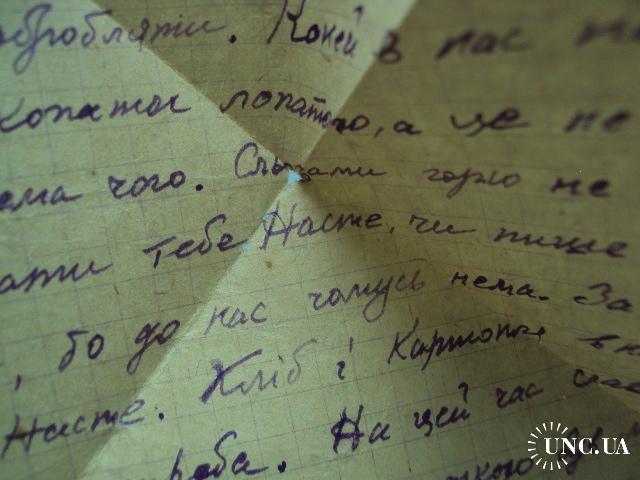 обробляти. Коней в нас
копаток лопатою, а це не
ема чого. Сльозами горло не
ати тебе Насте, чи пише
, бо до нас чомусь нема. За
Насте. Хліб і Картопля
роба. На цей час
UNC.UA